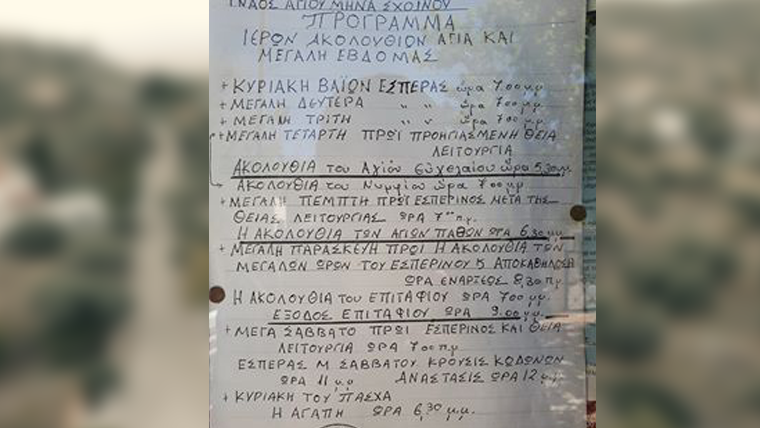 Ι. ΝΑΟΣ ΑΓΙΟΥ ΜΗΝΑ ΣΧΟΙΝΟΥ
ΠΡΟΓΡΑΜΜΑ
ΙΕΡΩΝ ΑΚΟΛΟΥΘΙΩΝ ΑΓΙΑ ΚΑΙ
ΜΕΓΑΛΗ ΕΒΔΟΜΑΣ
+ ΚΥΡΙΑΚΗ ΒΑΪΩΝ ΕΣΠΕΡΑΣ ώρα 7.00 μ.μ.
+ ΜΕΓΑΛΗ ΔΕΥΤΕΡΑ " " ώρα 7.00 μ.μ.
+ ΜΕΓΑΛΗ ΤΡΙΤΗ " " ώρα 7.00 μ.μ.
+ ΜΕΓΑΛΗ ΤΕΤΑΡΤΗ ΠΡΩΪ ΠΡΟΗΓΙΑΣΜΕΝΗ ΘΕΙΑ
ΛΕΙΤΟΥΡΓΙΑ
ΑΚΟΛΟΥΘΙΑ του Αγίου Ευχελαίου ώρα 5,30 μμ.
ΑΚΟΛΟΥΘΙΑ του Νυμφίου ώρα 7 00 μμ
+ ΜΕΓΑΛΗ ΠΕΜΠΤΗ ΠΡΩΪ ΕΣΠΕΡΙΝΟΣ ΜΕΤΑ ΤΗΣ
ΘΕΙΑΣ ΛΕΙΤΟΥΡΓΙΑΣ ΩΡΑ 7 π.μ.
Η ΑΚΟΛΟΥΘΙΑ ΤΩΝ ΑΓΙΩΝ ΠΑΘΩΝ ΩΡΑ 6,30 μ.μ.
+ ΜΕΓΑΛΗ ΠΑΡΑΣΚΕΥΗ ΠΡΩΪ Η ΑΚΟΛΟΥΘΙΑ ΤΩΝ
ΜΕΓΑΛΩΝ ΩΡΩΝ ΤΟΥ ΕΣΠΕΡΙΝΟΥ ΑΠΟΚΑΘΗΛΩΣΗ
ΩΡΑ ΕΝΑΡΞΕΩΣ 8,30 π.μ.
Η ΑΚΟΛΟΥΘΙΑ του ΕΠΙΤΑΦΙΟΥ ΩΡΑ 7 00 μ.μ.
ΕΞΟΔΟΣ ΕΠΙΤΑΦΙΟΥ ΩΡΑ 9.00 μ.μ.
+ ΜΕΓΑ ΣΑΒΒΑΤΟ ΠΡΩΪ ΕΣΠΕΡΙΝΟΣ ΚΑΙ ΘΕΙΑ
ΛΕΙΤΟΥΡΓΙΑ ΩΡΑ 7 00 π.μ
ΕΣΠΕΡΑΣ Μ ΣΑΒΒΑΤΟΥ ΚΡΟΥΣΙΣ ΚΩΔΩΝΩΝ
ΩΡΑ 11 μ.μ ΑΝΑΣΤΑΣΙΣ ΩΡΑ 12 μ.μ.
+ ΚΥΡΙΑΚΗ ΤΟΥ ΠΑΣΧΑ
Η ΑΓΑΠΗ ΩΡΑ 6,30 μ.μ.